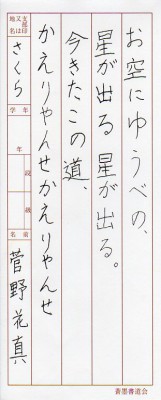 お空にゆうべの、
星が出る 星が出る。
今きたこの道、
かえりゃんせかえりゃんせ
支部印又は地名
さくら
学年
年
段
級
名前
菅野花真
書墨書道会